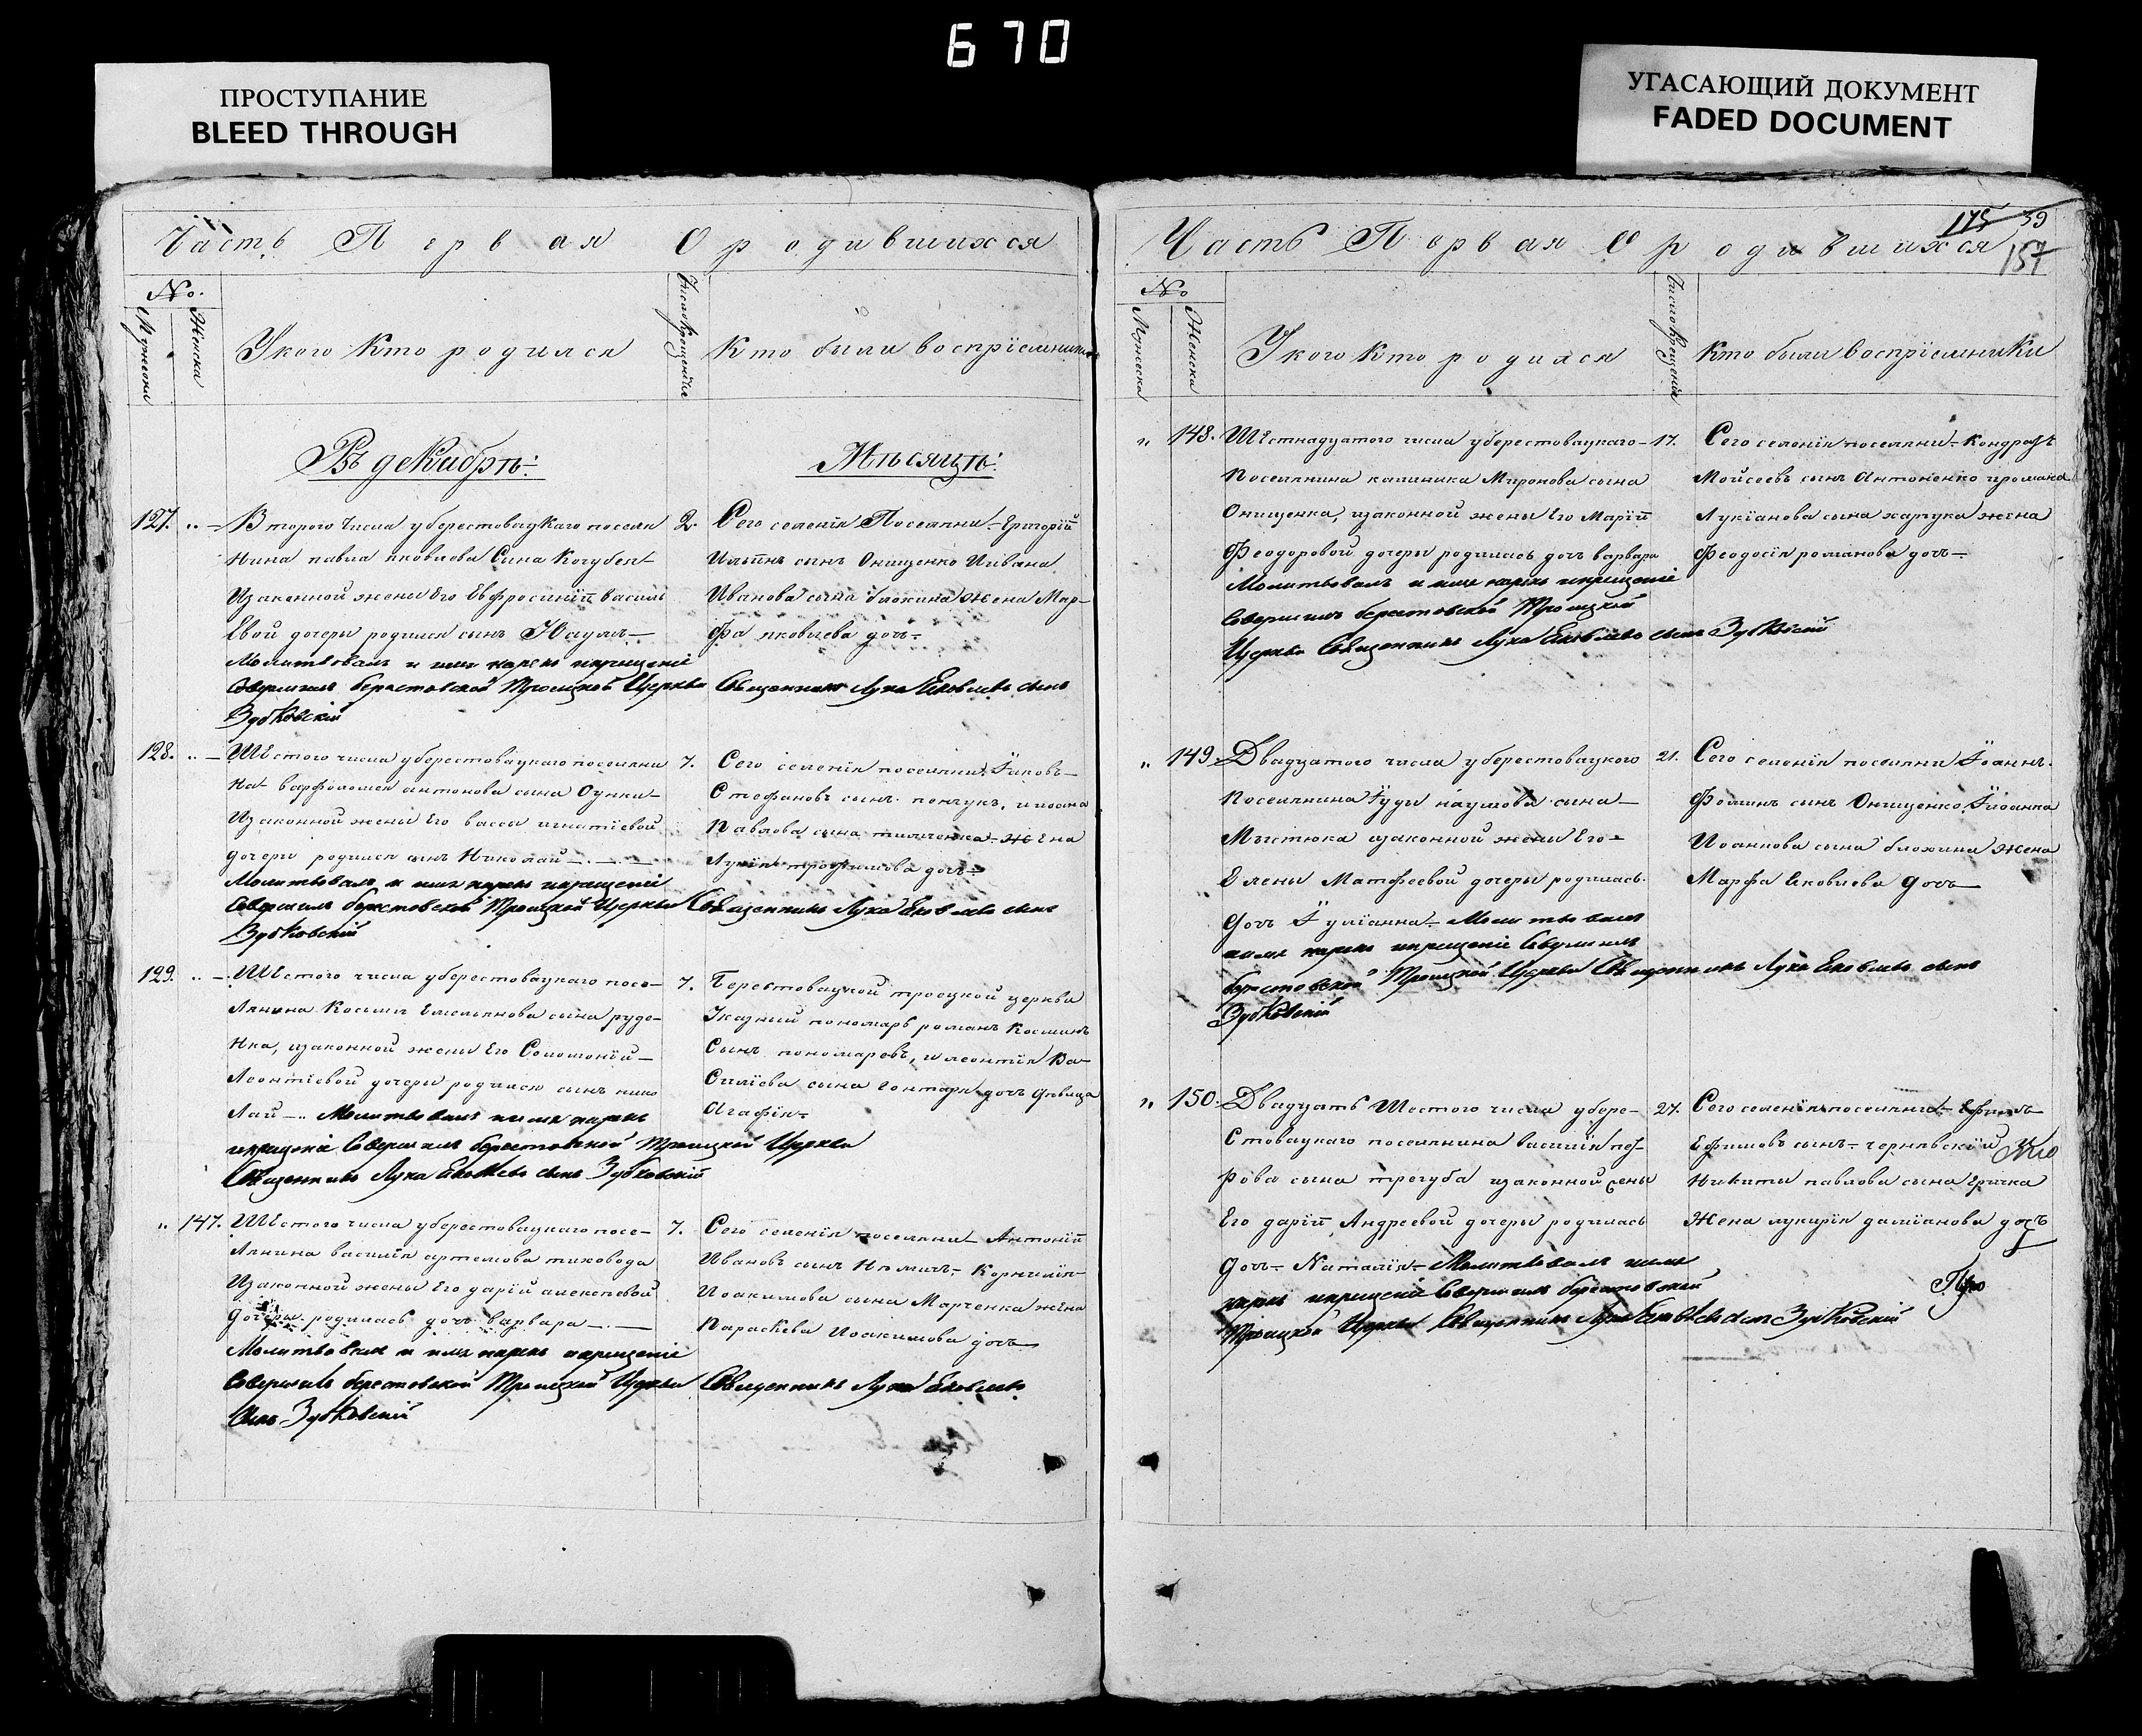 670
ПРОСТУПАНИЕ
BLEED THROUGH
УГАСАЮЩИЙ ДОКУМЕНТ
FADED DOCUMENT
Часть Первая О родившихся
№
Мужеска
Женска
У кого кто родился
Число крещенія
Кто были воспріемники
Въ декабрѣ:
Мѣсяцѣ:
127.
Втораго числа у берестовацкаго поселя
нина павла яковлева сына Кочубея
изаконной жены Его Евфросиніи васили
Евой дочери родился сынъ Наумъ
Молитвовалъ и имя нарекъ икрещеніе
Совершилъ берестовской Троицкой Церкви Священникъ Лука Яковлевъ сынъ
Зубковскій
2.
Сего селенія Поселяни Григорій
Ильинъ сынъ Онищенко Иивана
Иванова сына блохина жена Мар-
фа яковлева дочь
128.
Шестого числа у берестовацкаго поселяни
на варфоломея антонова сына
изаконной жены Его вассы игнатіевой
дочери родился сынъ Николай
Молитвовалъ и имя нарекъ икрещеніе
Совершилъ берестовской Троицкой Церкви Священникъ Лука Яковлевъ сынъ
Зубковскій
7.
Сего селенія поселяни Іаковъ
Стефановъ сынъ и иоана
Павлова сына жена
трофимова дочь
129.
Шестого числа у берестовацкаго посе-
лянина Космы Емельянова сына руде-
нка, изаконной жены Его Соломоніи
Леонтіевой дочери родился сынъ нико
лай Молитвовалъ иимя нарекъ
икрещеніе Совершилъ берестовской Троицкой Церкви
Священникъ Лука Яковлевъ сынъ Зубковскій
7.
Берестовацкой троецкой церкви
Указный пономарь романъ Косминъ
Сынъ пономаревъ, и леонтія Ва-
силіева сына гонтаря дочь дѣвица
Агафія
147.
Шестого числа у берестовацкаго посе-
лянина василія артемова тиховода
изаконной жены Его даріи алексѣевой
дочери родилась дочь варвара
Молитвовалъ и имя нарекъ икрещеніе
Совершилъ берестовской Троицкой Церкви Священникъ Лука Яковлевъ
Сынъ Зубковскій
7.
Сего селенія поселяни Антоній
Ивановъ сынъ Корнилія
Иоакимова сына Марченка жена
Параскева Иоакимова дочь
Часть Первая О родившихся
175 39
157
№
Мужеска
Женска
У кого кто родился
Число крещенія
Кто были воспріемники
148.
Шестнадцатого числа у берестовацкаго
Поселянина калиника Миронова сына
Онищенка, изаконной жены Его Маріи
Феодоровой дочери родилась дочь варвара
Молитвовалъ и имя нарекъ икрещеніе
Совершилъ берестовской Троицкой
Церкви Священникъ Лука Яковлевъ сынъ Зубковскій
17.
Сего селенія поселяни Кондратъ
Мойсеевъ сынъ Антоненко иромана
Лукіанова сына харука жена
Феодосія романова дочь
149.
Двадцатого числа у берестовацкого
Поселянина Іуды наумова сына
Мыстюка изаконной жены Его
Елены Матфеевой дочери родилась
дочь Іуліанна Молитвовалъ
иимя нарекъ икрещеніе Совершилъ
берестовской Троицкой Церкви Священникъ Лука Яковлевъ сынъ
Зубковскій
21.
Сего селенія поселяни Іоаннъ
Фоминъ сынъ Онищенко, Иіоанна
Иоаннова сына блохина жена
Марфа Яковлева дочь
150.
Двадцать Шестого числа у бере-
стовацкаго поселянина василія пет-
рова сына трегуба изаконной жены
Его даріи Андреевой дочери родилась
дочь Наталія Молитвовалъ иимя
нарекъ икрещеніе Совершилъ берестовской
Троицкой Церкви Священникъ Лука Яковлевъ сынъ Зубковскій
27.
Сего селенія поселяни Ефимъ
Ефимовъ сынъ чернявскій
Никиты павлова сына
Жена лукирія даміанова дочь